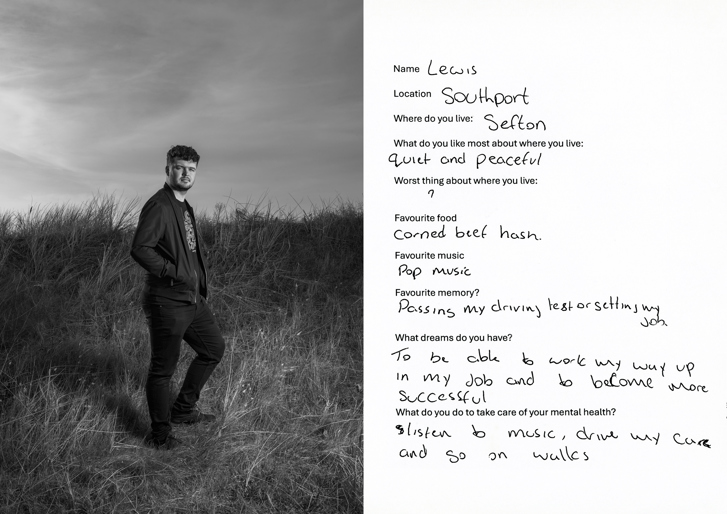 Name Lewis
Location Southport
Where do you live: Sefton
What do you like most about where you live:
quiet and peaceful
Worst thing about where you live:
?
Favourite food
corned beef hash.
Favourite music
Pop music
Favourite memory?
Passing my driving test or setting my
Job
What dreams do you have?
To be able to work my way up
in my Job and to become more
successful
What do you do to take care of your mental health?
listen to music, drive my care
and go on walks